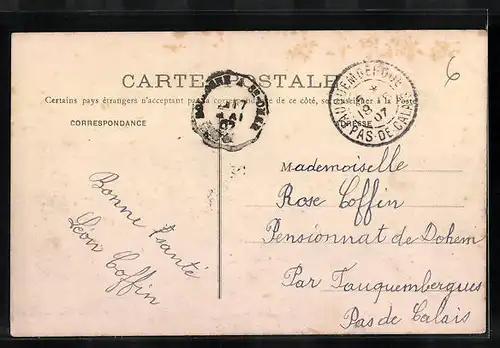 CARTE POSTALE
Certains pays étrangers n'acceptant pas la correspondance de ce côté, se renseigner à la Poste
CORRESPONDANCE
ADRESSE
FAUQUEMBERGUE
07
PAS-DE-CALAIS
6
Mademoiselle
Rose Coffin
Pensionnat de Dohem
Par Fauquembergues
Pas de Calais
Bonne santé
Léon Coffin